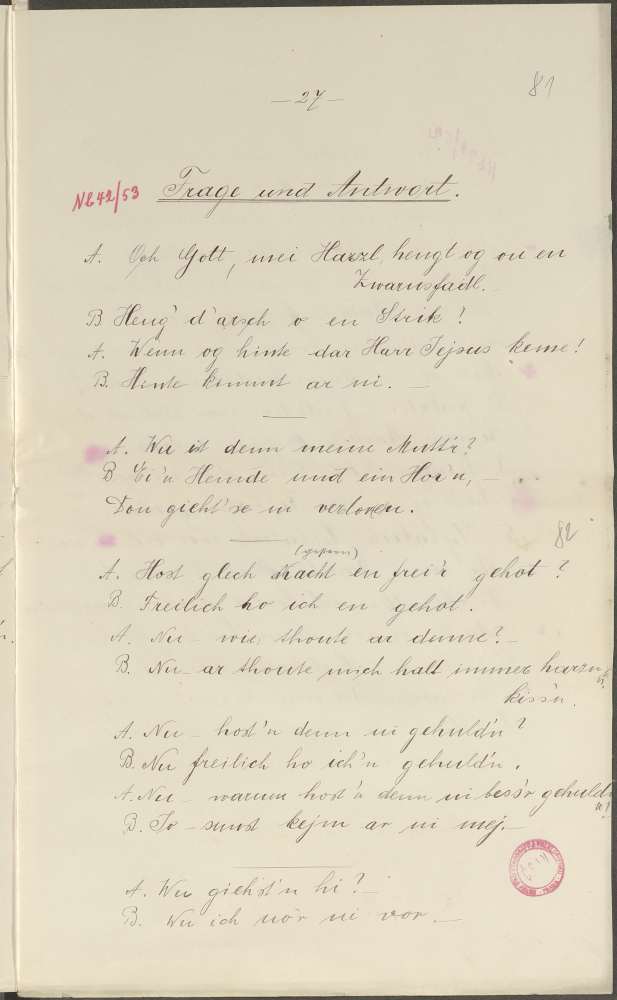 — 27 —
81
Nb 42/53
Frage und Antwort.
A. Och Gott, mei Harzl, hengt og on en
Zwarnsfadl.
B Heng' d'arsch o en Strik!
A. Wenn og hinte dar Harr Jejsus keme!
B. Hinte kimmt ar ni. —
A. Wu ist denn meine Mutt'r?
B Ei'n Hemde und ein Hor'n, —
Dou gieht'se ni verloren.
82
(gestern)
A. Host glech Nacht en frei'r gehot?
B. Freilich ho ich en gehot.
A. Nu – wie thoute ar denne? –
B. Nu – ar thoute mich halt immer harzn u.
kiss'n.
A. Nu – host'n denn ni gehuld'n?
B. Nu freilich ho ich'n gehuld'n.
A. Nu – warum host'n denn ni bess'r gehuld'n!
B. Jo – sunst kejm ar ni mej. –
A. Wu giehst'n hi? –
B. Wu ich nor ni vor. —